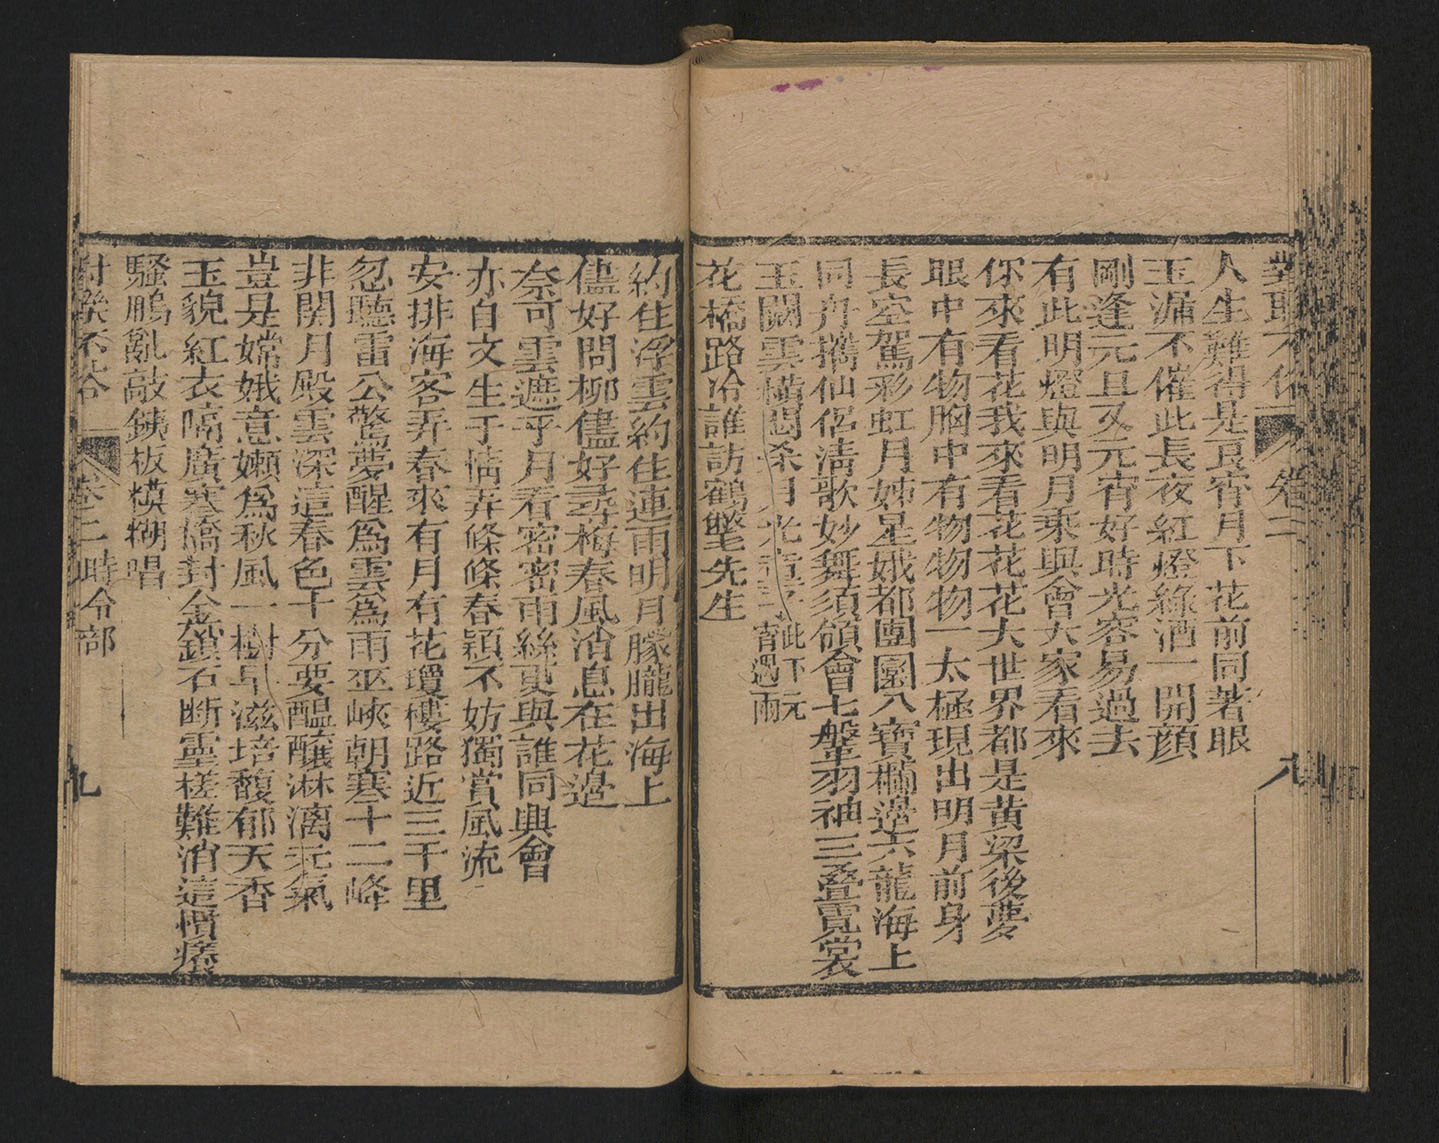 對聯不俗 卷二 八
人生難得是良宵月下花前同著眼
玉漏不催此長夜紅燈綠酒一開顏
剛逢元旦又元宵好時光容易過去
有此明燈與明月乘興會大家看來
你來看花我來看花花花大世界都是黄梁後夢
眼中有物胸中有物物物一太極現出明月前身
長空駕彩虹月姊星娥都團圞八寶欄邊六龍海上
同舟攜仙侶清歌妙舞須領會七盤羽袖三叠霓裳
玉關雲橫閟杀月光
此下元
宵遇雨
花橋路冷誰訪鶴氅先生
約住浮雲約住連雨明月朦朧出海上
儘好問柳儘好尋梅春風消息在花邊
奈可雲遮乎月看密密雨絲更與誰同興會
亦自文生于情弄條條春穎不妨獨賞風流
安排海客弄春來有月有花瓊樓路近三千里
忽聽雷公驚夢醒為雲為雨巫峽朝寒十二峰
非関月殿雲深這春色十分要醞釀淋漓元氣
豈是嫦娥意嬾為秋風一樹早滋培馥郁天香
玉貌紅衣嗝廣寒橋封金鎖石断靈槎難消這慣癢
騷鵬亂敲鐵板模糊唱
對聯不俗 卷二時令部 九